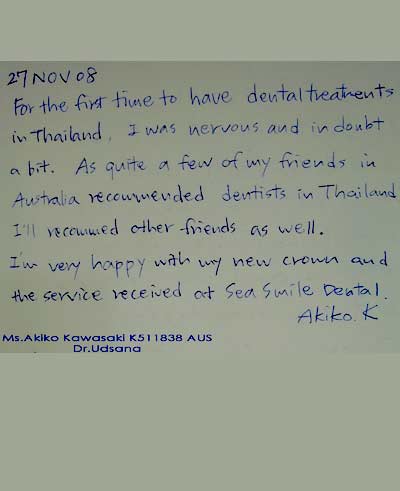 27 NOV 08
For the first time to have dental treatments
in Thailand, I was nervous and in doubt
a bit. As quite a few of my friends in
Australia recommended dentists in Thailand
I'll recommed other friends as well.
I'm very happy with my new crown and
the service received at Sea Smile Dental.
Akiko. K
Ms.Akiko Kawasaki K511838 AUS
Dr.Udsana